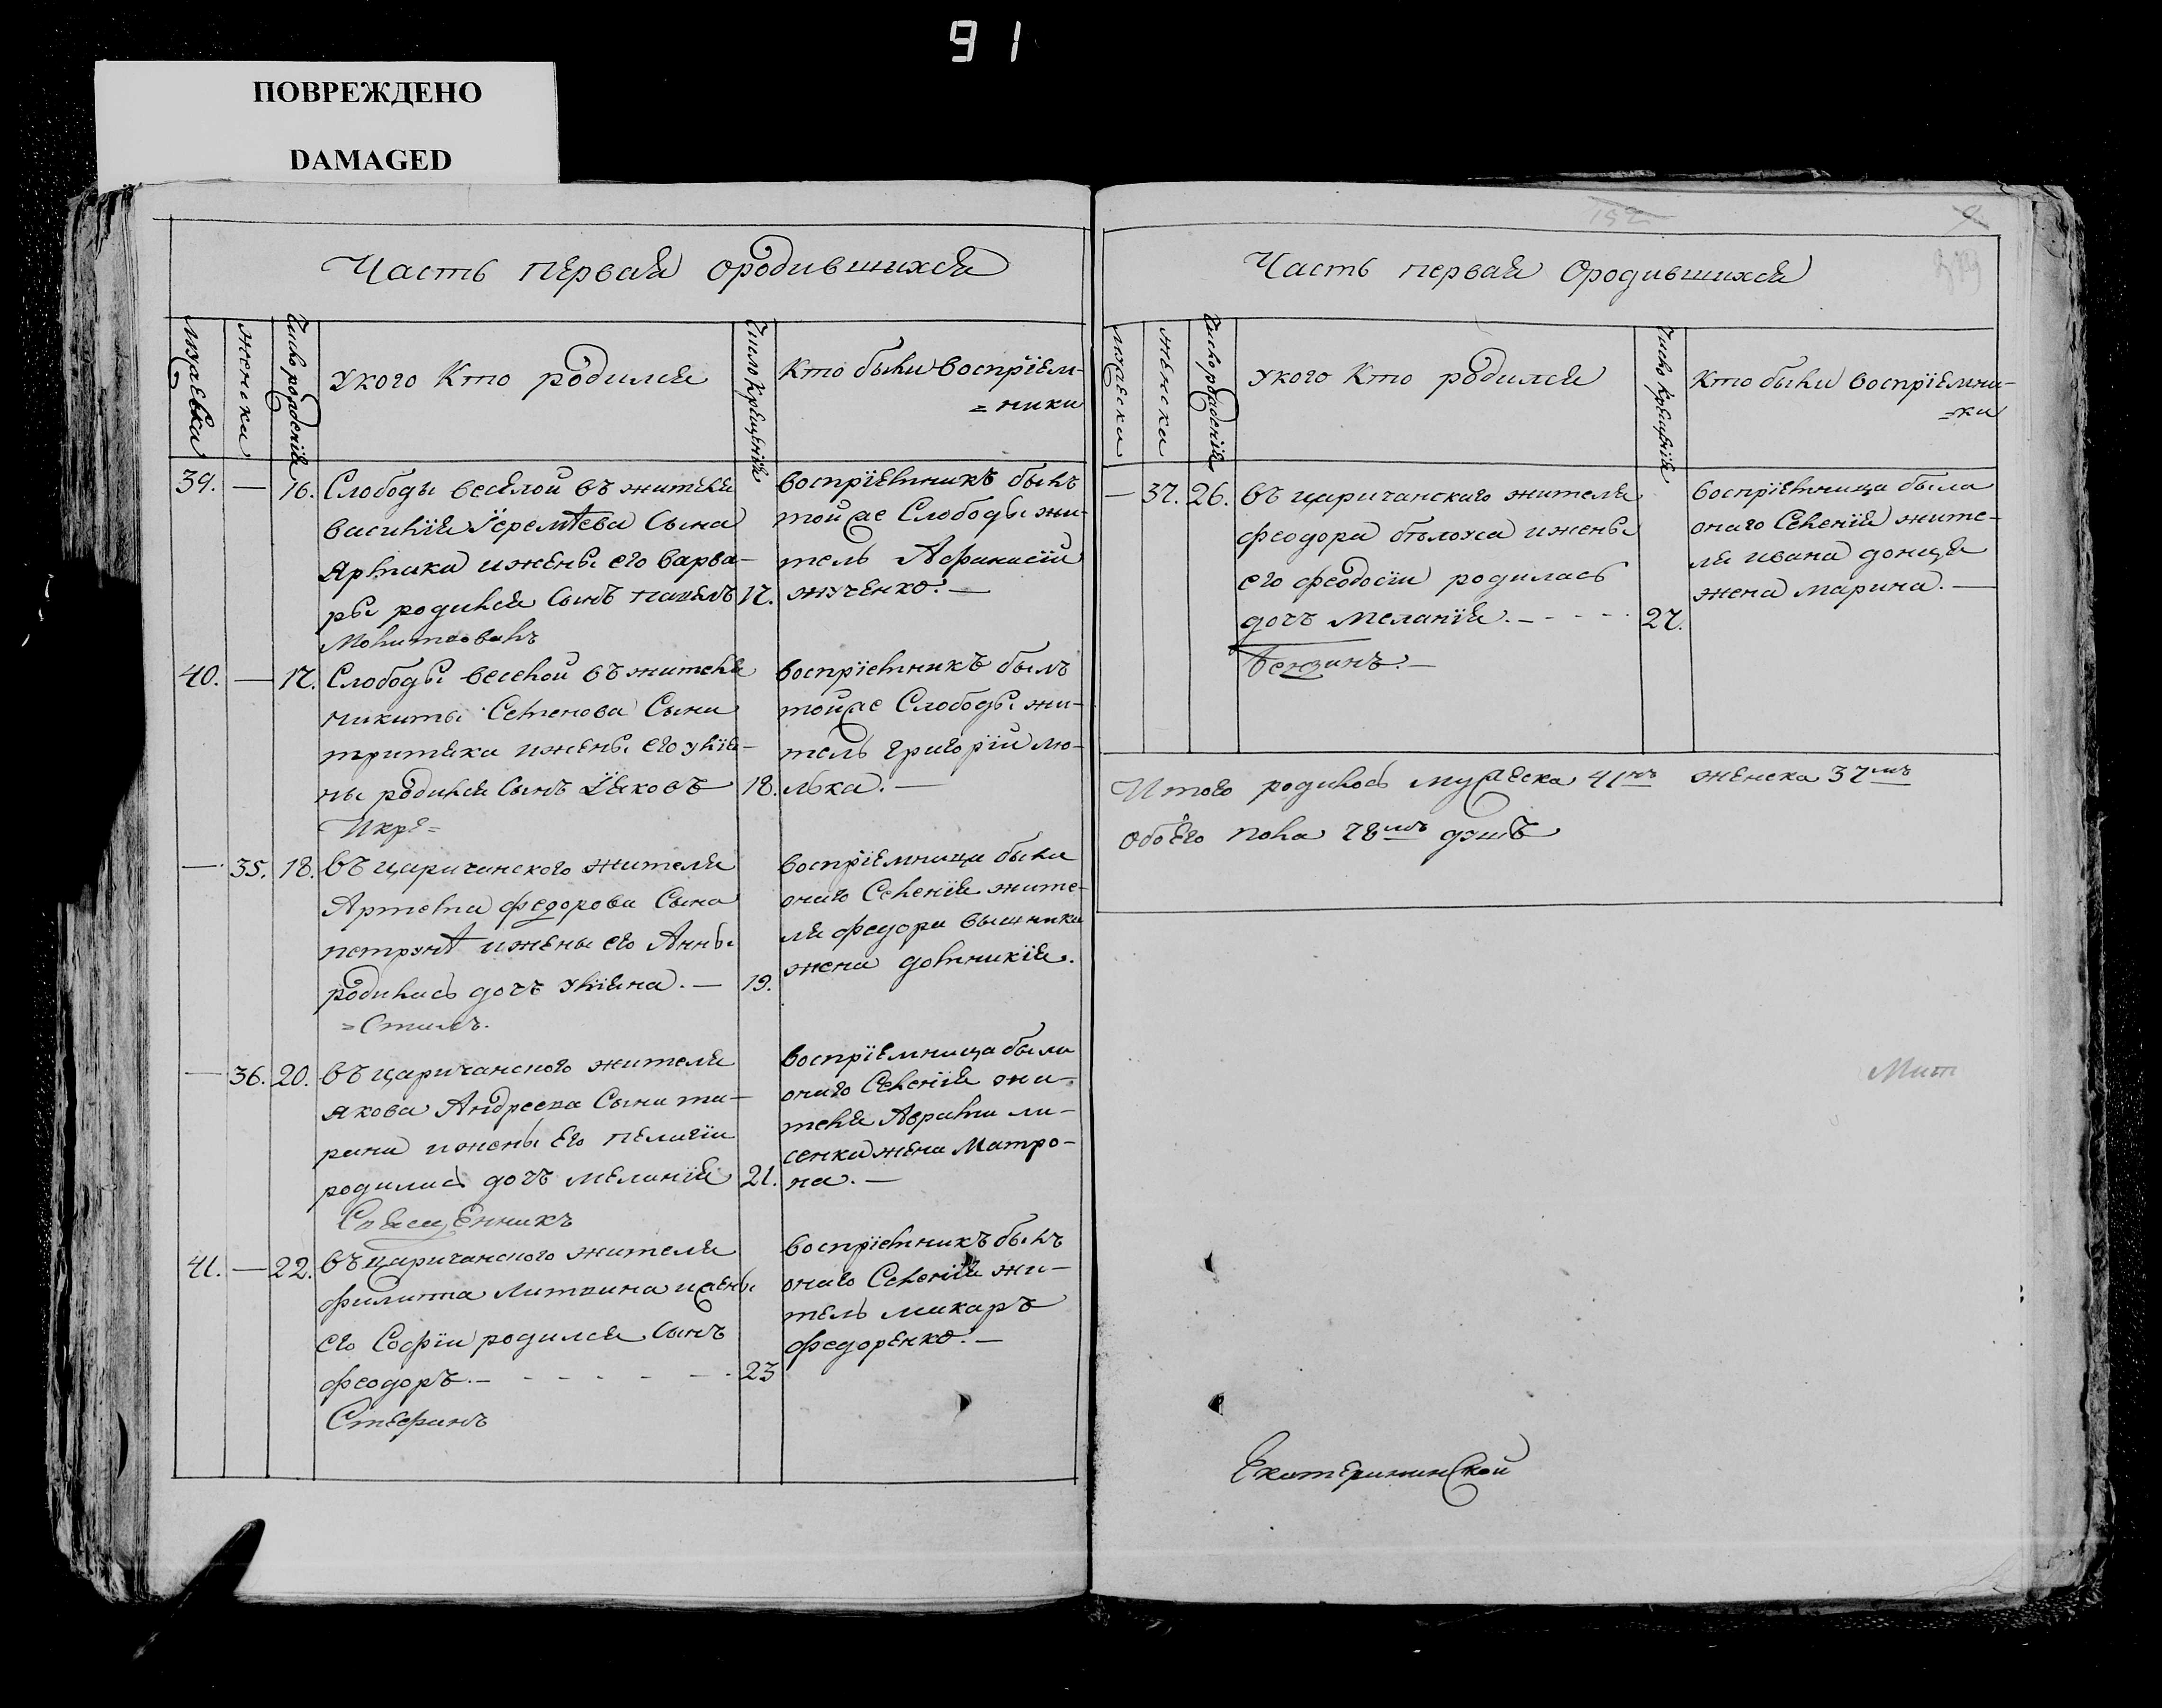 91
ПОВРЕЖДЕНО
DAMAGED
Часть первая ородившихся
мужеска
женска
Число рождениѧ
укого кто родился
Число крещениѧ
кто были воспріем-
=ники
39. — 16. Слободы веселой въ жителя
василія Іеремѣева сына
ярѣмака ижены его варва-
ры родился сынъ павелъ 17.
Молитвовалъ
воспріемникъ былъ
тойже слободы жи-
тель Афанасій
жученко. —
40. — 17. Слободы веселой въ жителя
никиты Семенова сына
ижены его улія-
ны родился сынъ Іяковъ 18.
Икре=
воспріемникъ былъ
тойже слободы жи-
тель григорій лю-
лька. —
— 35. 18. въ царичанского жителя
Артема федорова сына
ижены его Анны
родилась дочъ уліяна. — 19.
=стилъ.
воспріемница была
онаго селенія жите-
ля федора вышника
жена домникія.
— 36. 20. въ царичанского жителя
якова Андреева сына та-
рана ижены его пелагіи
родилась дочъ меланія 21.
Священникъ
воспріемница была
онаго селенія жи-
теля Аврама ли-
сенка жена Матро-
на. —
41. — 22. въ царичанского жителя
филиппа литвина ижены
его Софіи родился сынъ
феодоръ. — 23
Стефанъ
воспріемникъ былъ
онаго селенія жи-
тель макаръ
федоренко. —
152
Часть первая ородившихся
мужеска
женска
Число рождениѧ
укого кто родился
Число крещениѧ
кто были воспріемни-
=ки
— 37. 26. въ царичанскаго жителя
феодора бѣлоуса ижены
его феодосіи родилась
дочъ меланія. — 27.
Бензинъ. —
воспріемница была
онаго селенія жите-
ля ивана донця
жена марина. —
Итого родилось мужеска 41нъ женска 37мъ
обоего пола 78мъ душъ
Мит
Екатерининской